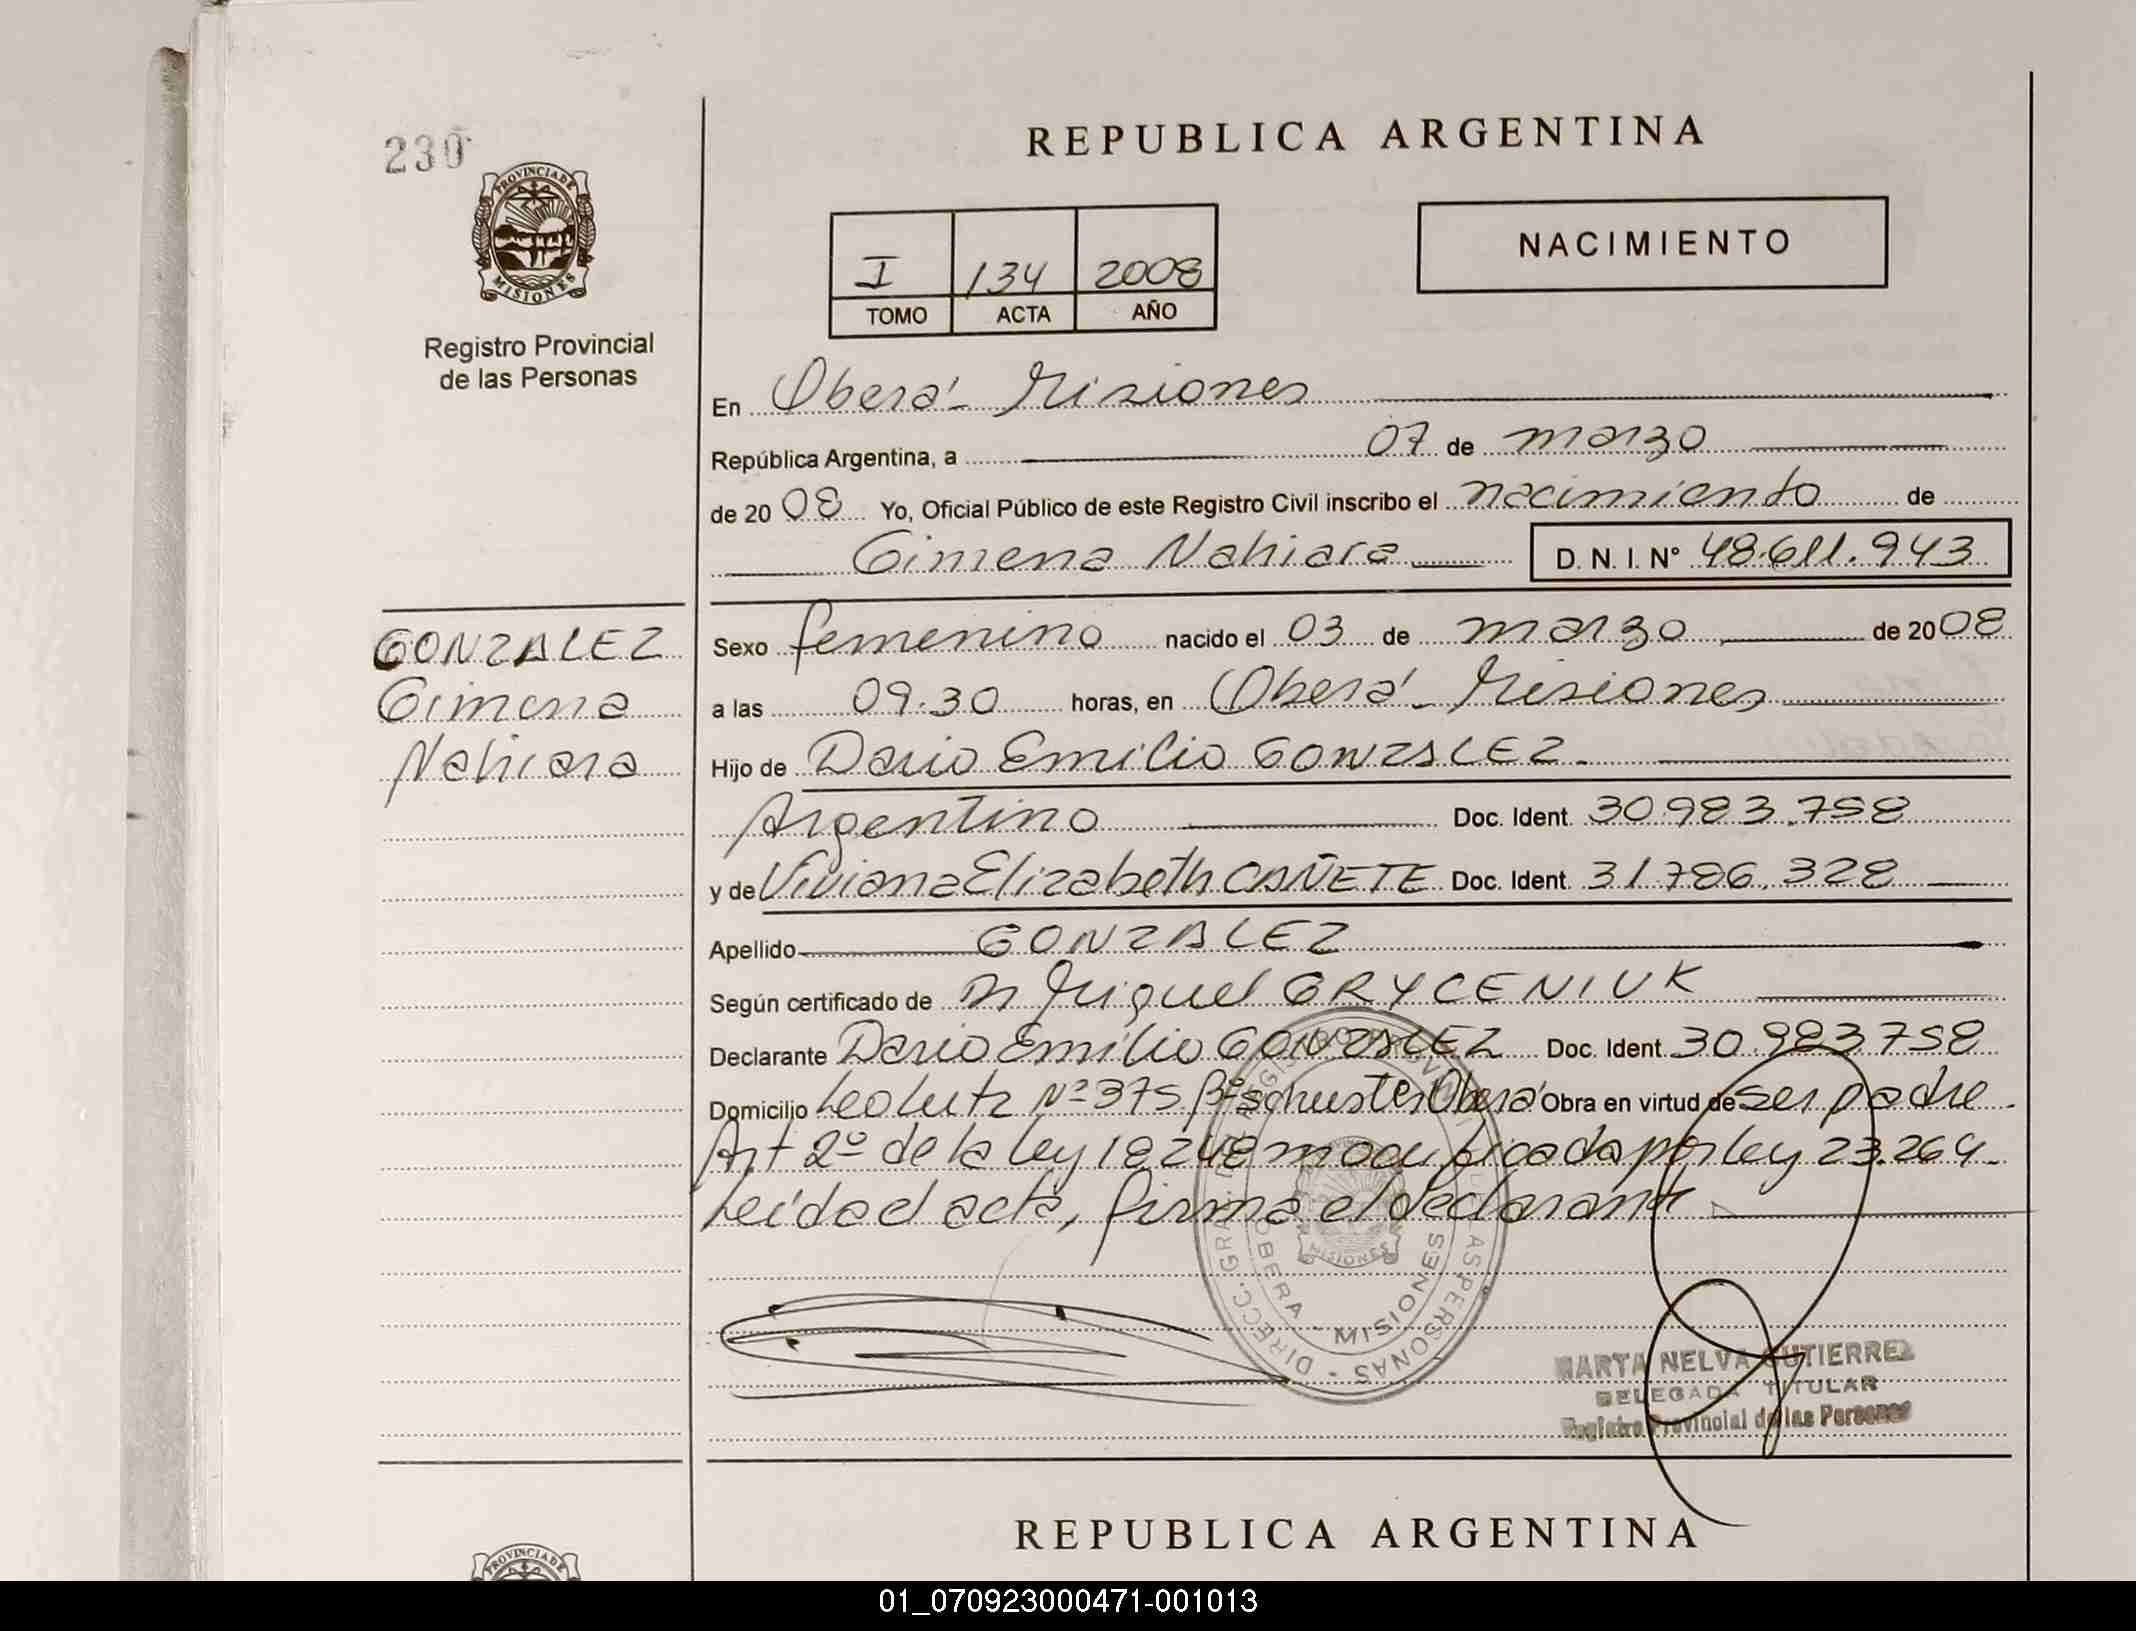 230
PROVINCIA DE
MISIONES
Registro Provincial
de las Personas
REPUBLICA ARGENTINA
I 134 2008
TOMO ACTA AÑO
NACIMIENTO
En Oberá - Misiones
República Argentina, a 07 de marzo
de 20 08 Yo, Oficial Público de este Registro Civil inscribo el nacimiento de
Gimena Nahiara D. N. I. N° 48.611.943
GONZALEZ
Gimena
Nahiara
Sexo femenino nacido el 03 de marzo de 20 08
a las 09.30 horas, en Oberá - Misiones
Hijo de Dario Emilio GONZALEZ.
Argentino Doc. Ident. 30.983.758
y de Viviana Elizabeth CAÑETE Doc. Ident. 31.786.328
Apellido GONZALEZ
Según certificado de Miguel GRYCENIUK
Declarante Dario Emilio GONZALEZ Doc. Ident. 30.983758
Domicilio Leo Lutz Nº 375 Bº Schuster Oberá Obra en virtud de ser padre
Art 2º de la ley 18248 modificada por ley 23.264.
Leída el acta, firma el declarante
DIRECC. GRAL. DE REGISTRO PROVINCIAL DE LAS PERSONAS
OBERA - MISIONES
MISIONES
MARTA NELVA GUTIERREZ
DELEGADA TITULAR
Registro Provincial de las Personas
REPUBLICA ARGENTINA
PROVINCIA DE
01_070923000471-001013